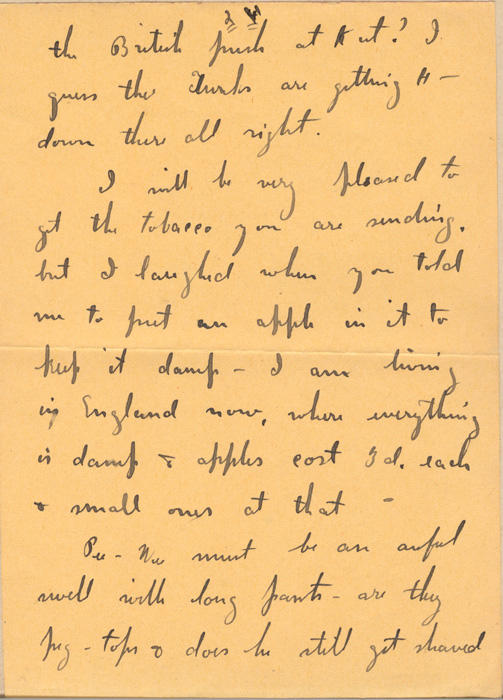 the British push at Kut? I
guess the Turks are getting H—
down there all right.
I will be very pleased to
get the tobacco you are sending,
but I laughed when you told
me to put an apple in it to
keep it damp – I am living
in England now, where everything
is damp & apples cost 3d. each
& small ones at that –
Pee-Wee must be an awful
swell with long pants – are they
peg-tops & does he still get shaved